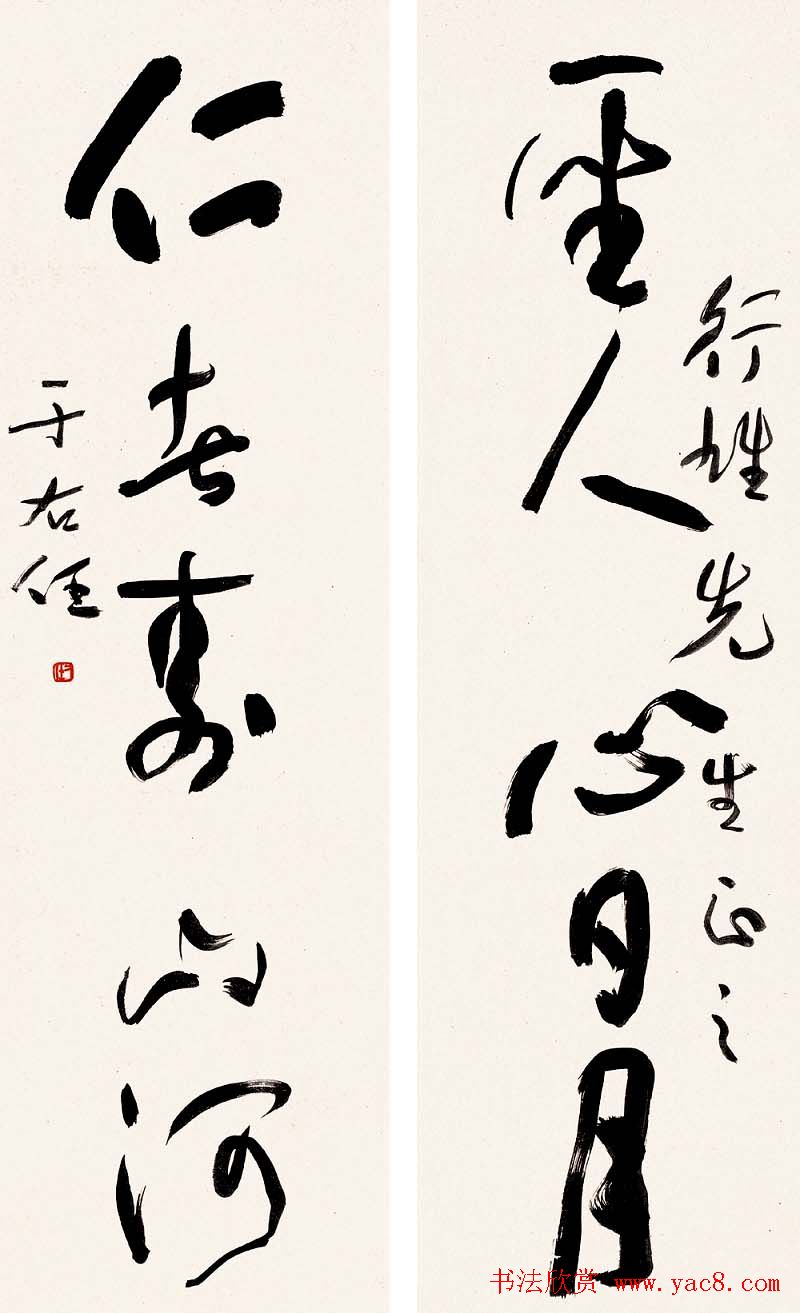 行雄先生正之
聖人心日月
仁者壽山河
于右任
书法欣赏 www.yac8.com